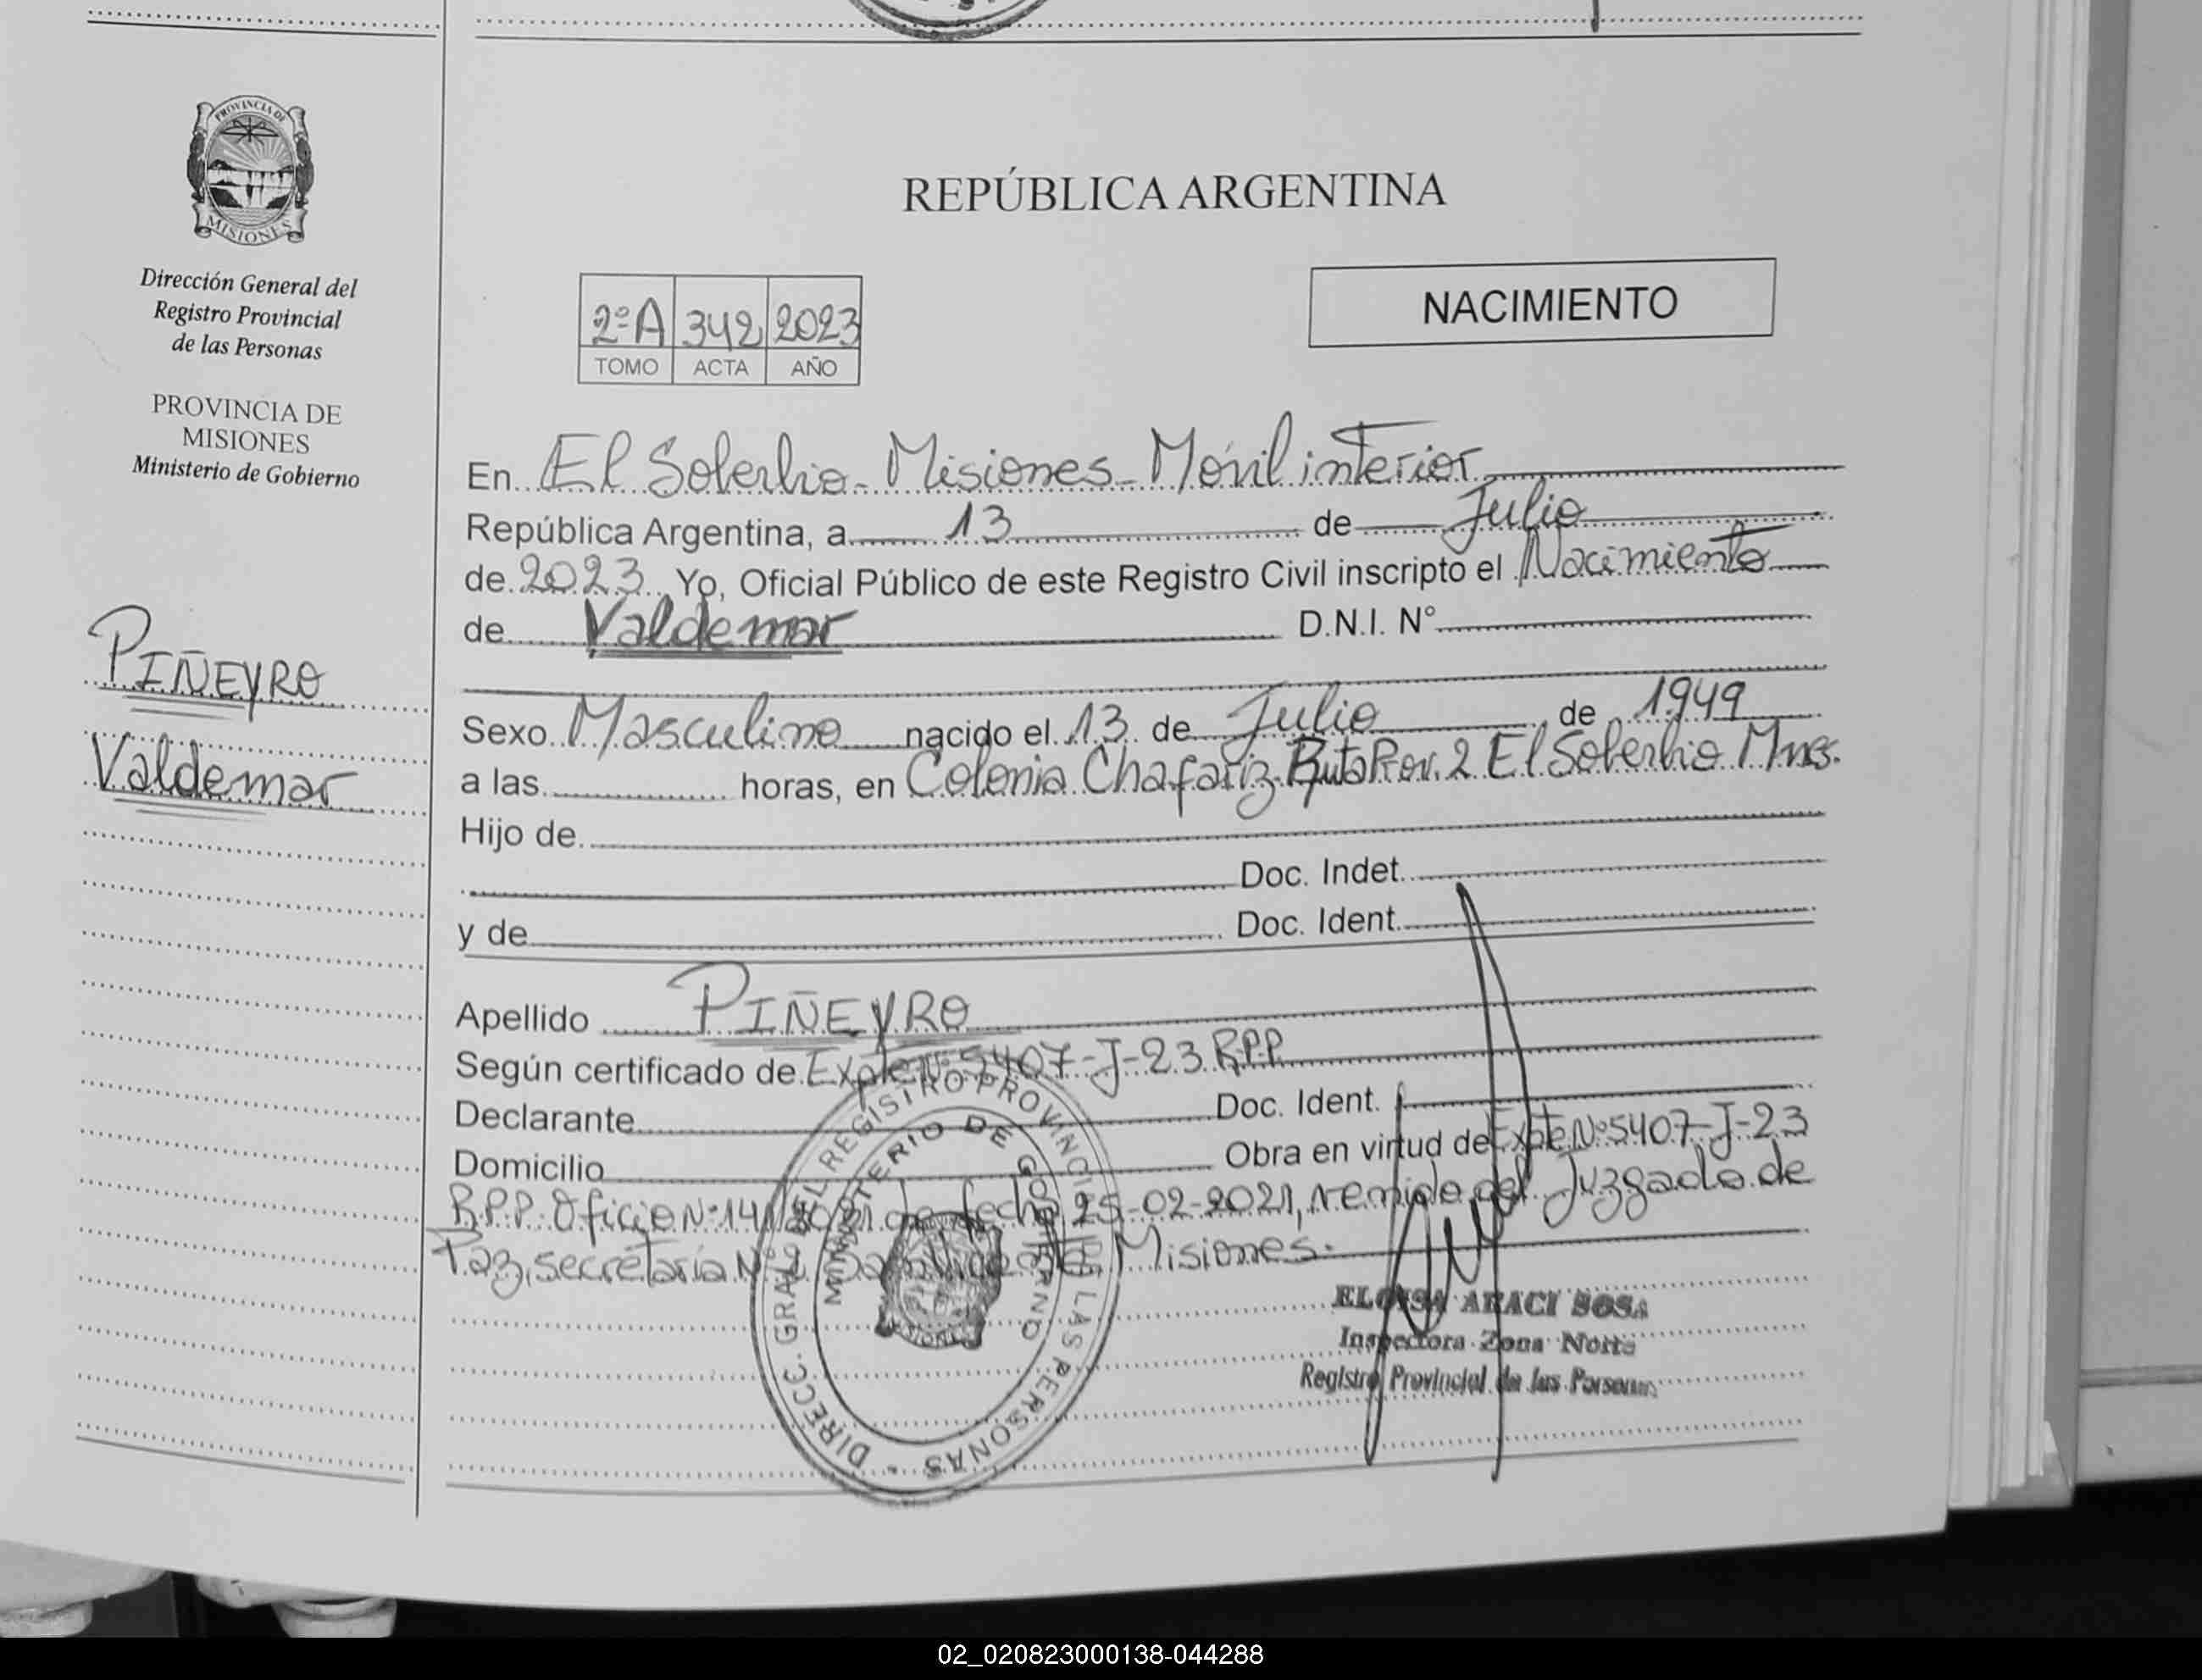 PROVINCIA DE
MISIONES
Dirección General del
Registro Provincial
de las Personas
PROVINCIA DE
MISIONES
Ministerio de Gobierno
PIÑEYRO
Valdemar
REPÚBLICA ARGENTINA
2º A 342 2023
TOMO ACTA AÑO
NACIMIENTO
En El Soberbio - Misiones - Móvil interior
República Argentina, a 13 de Julio
de 2023 Yo, Oficial Público de este Registro Civil inscripto el Nacimiento
de Valdemar D.N.I. N°
Sexo Masculino nacido el 13 de Julio de 1949
a las horas, en Colonia Chafariz. Ruta Prov. 2 El Soberbio Mnes.
Hijo de
Doc. Indet.
y de Doc. Ident.
Apellido PIÑEYRO
Según certificado de Expte Nº 5407-J-23 R.P.P.
Declarante Doc. Ident.
Domicilio Obra en virtud de Expte Nº 5407-J-23
R.P.P. Oficio Nº de fecha 25-02-2021, del Juzgado de
Paz, secretaría Misiones.
DIRECC. GRAL. DEL REGISTRO PROVINCIAL DE LAS PERSONAS -
MINISTERIO DE GOBIERNO
ELOISA ARACI SOSA
Inspectora Zona Norte
Registro Provincial de las Personas
02_020823000138-044288